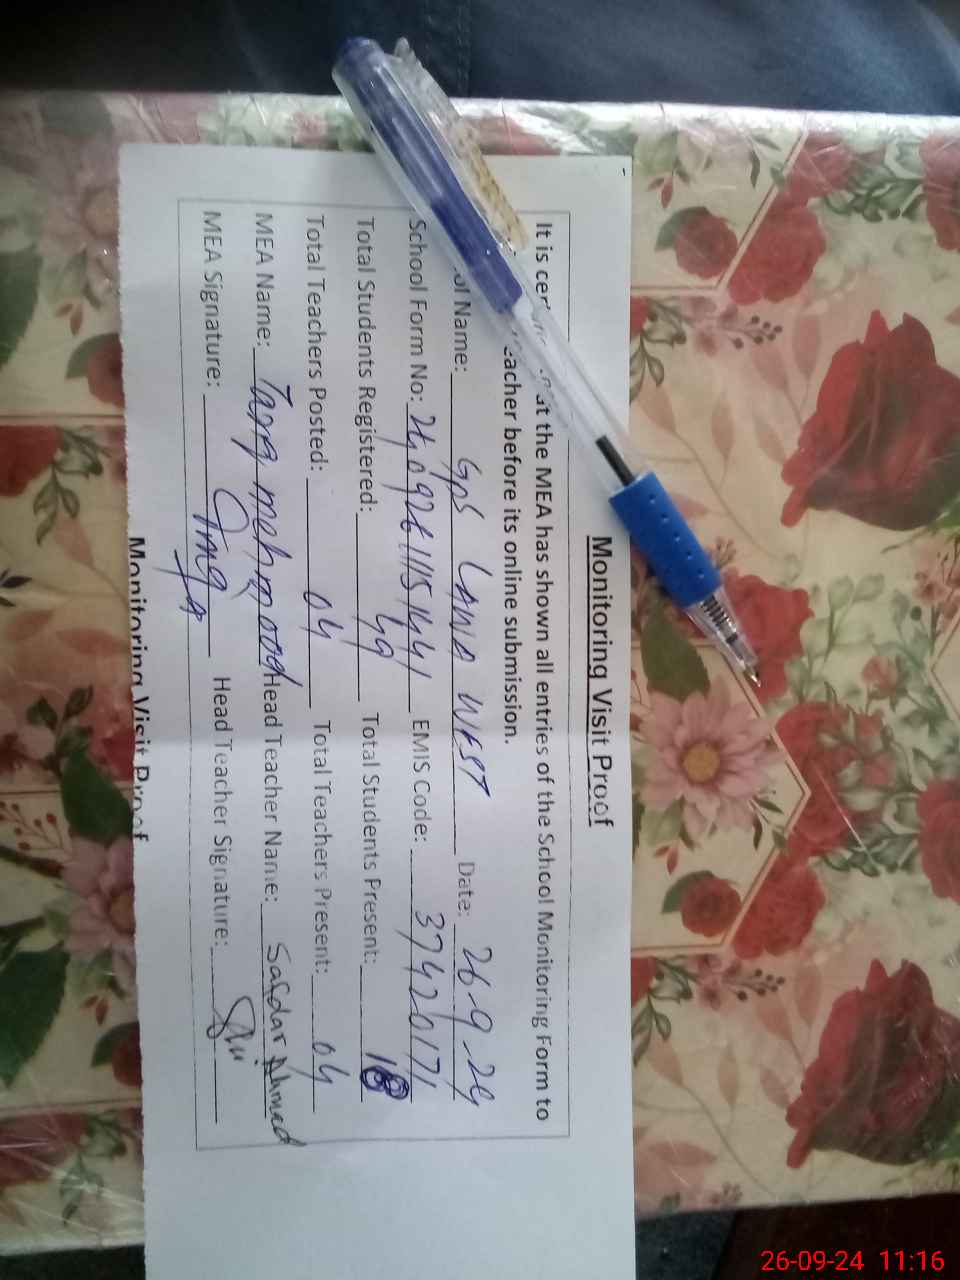 Monitoring Visit Proof
It is that the MEA has shown all entries of the School Monitoring Form to
before its online submission.
Name: GPS WEST Date: 26-9-24
School Form No: EMIS Code: 37420171
Total Students Registered: 49 Total Students Present: 18
Total Teachers Posted: 04 Total Teachers Present: 04
MEA Name: Tariq mehmood Head Teacher Name: Safdar Ahmed
MEA Signature: Head Teacher Signature:
Monitoring Visit Proof
26-09-24 11:16